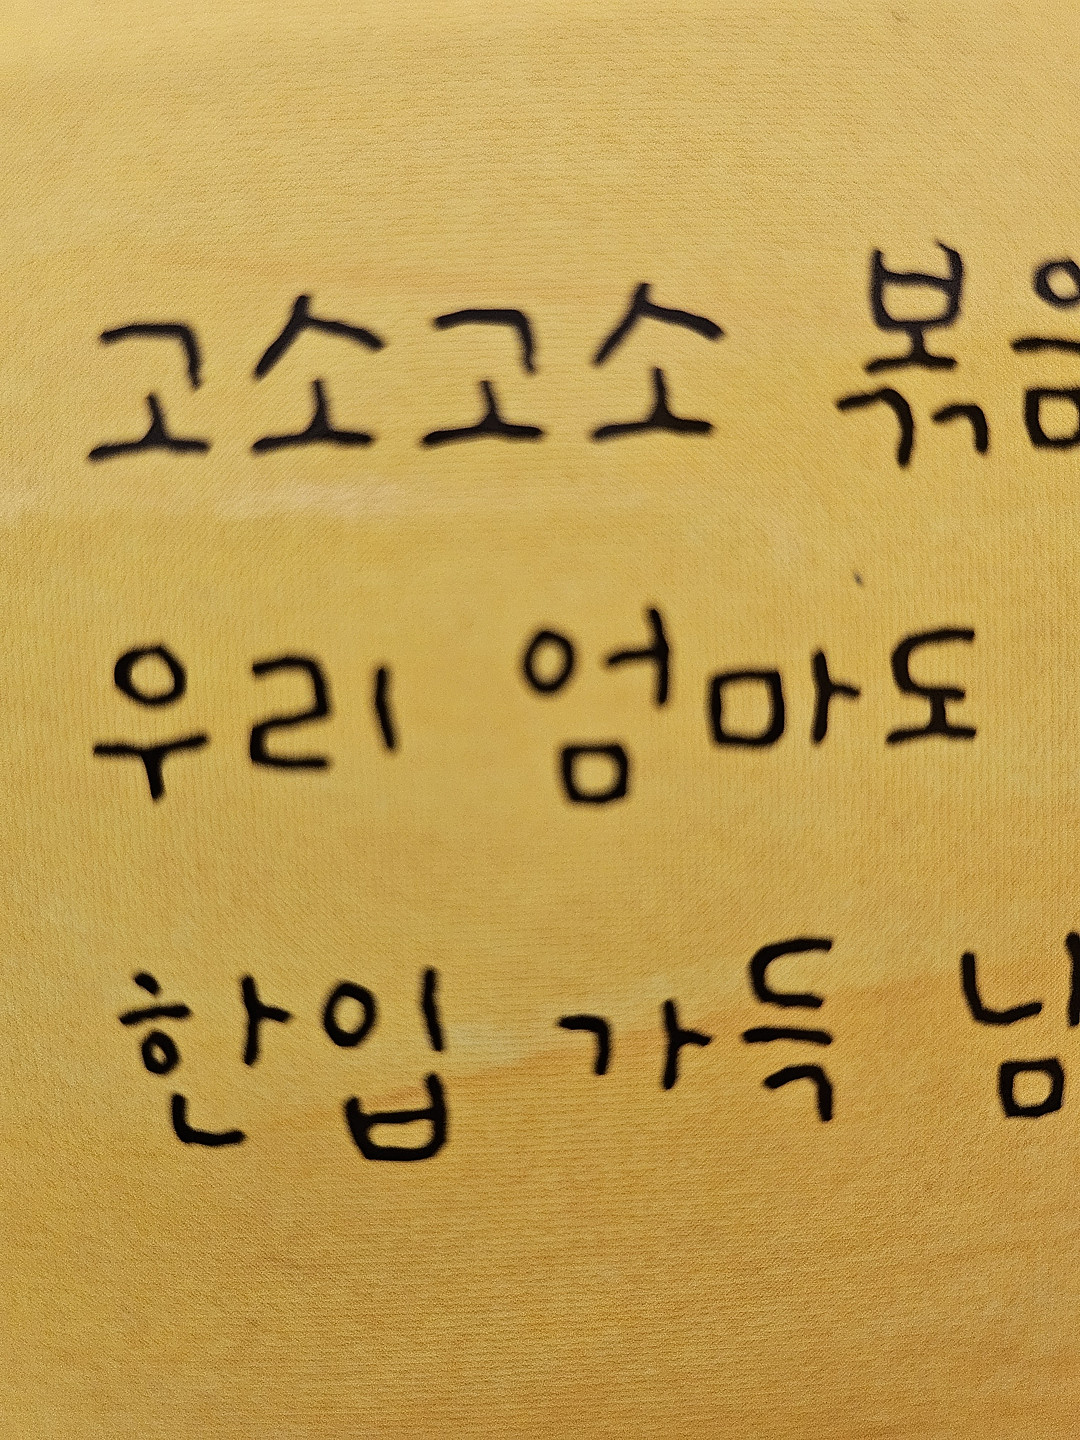 고소고소 볶음
우리 엄마도
한입 가득